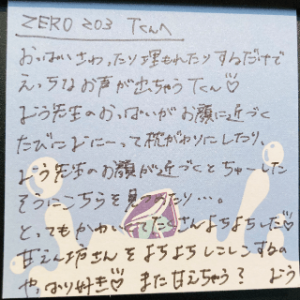 ZERO 203 Tくんへ
おっぱいさわったり埋もれたりするだけで
えっちなお声が出ちゃうTくん♡
よう先生のおっぱいがお顔に近づく
たびににーって枕がわりにしたり、
よう先生のお顔が近づくとちゅーした
そうにこちらを見つめたり…。
とってもかわいくてたくさんよちよちした♡
甘えん坊さんをよちよちしこしこするの
やっぱり好き♡ また甘えちゃう? よう